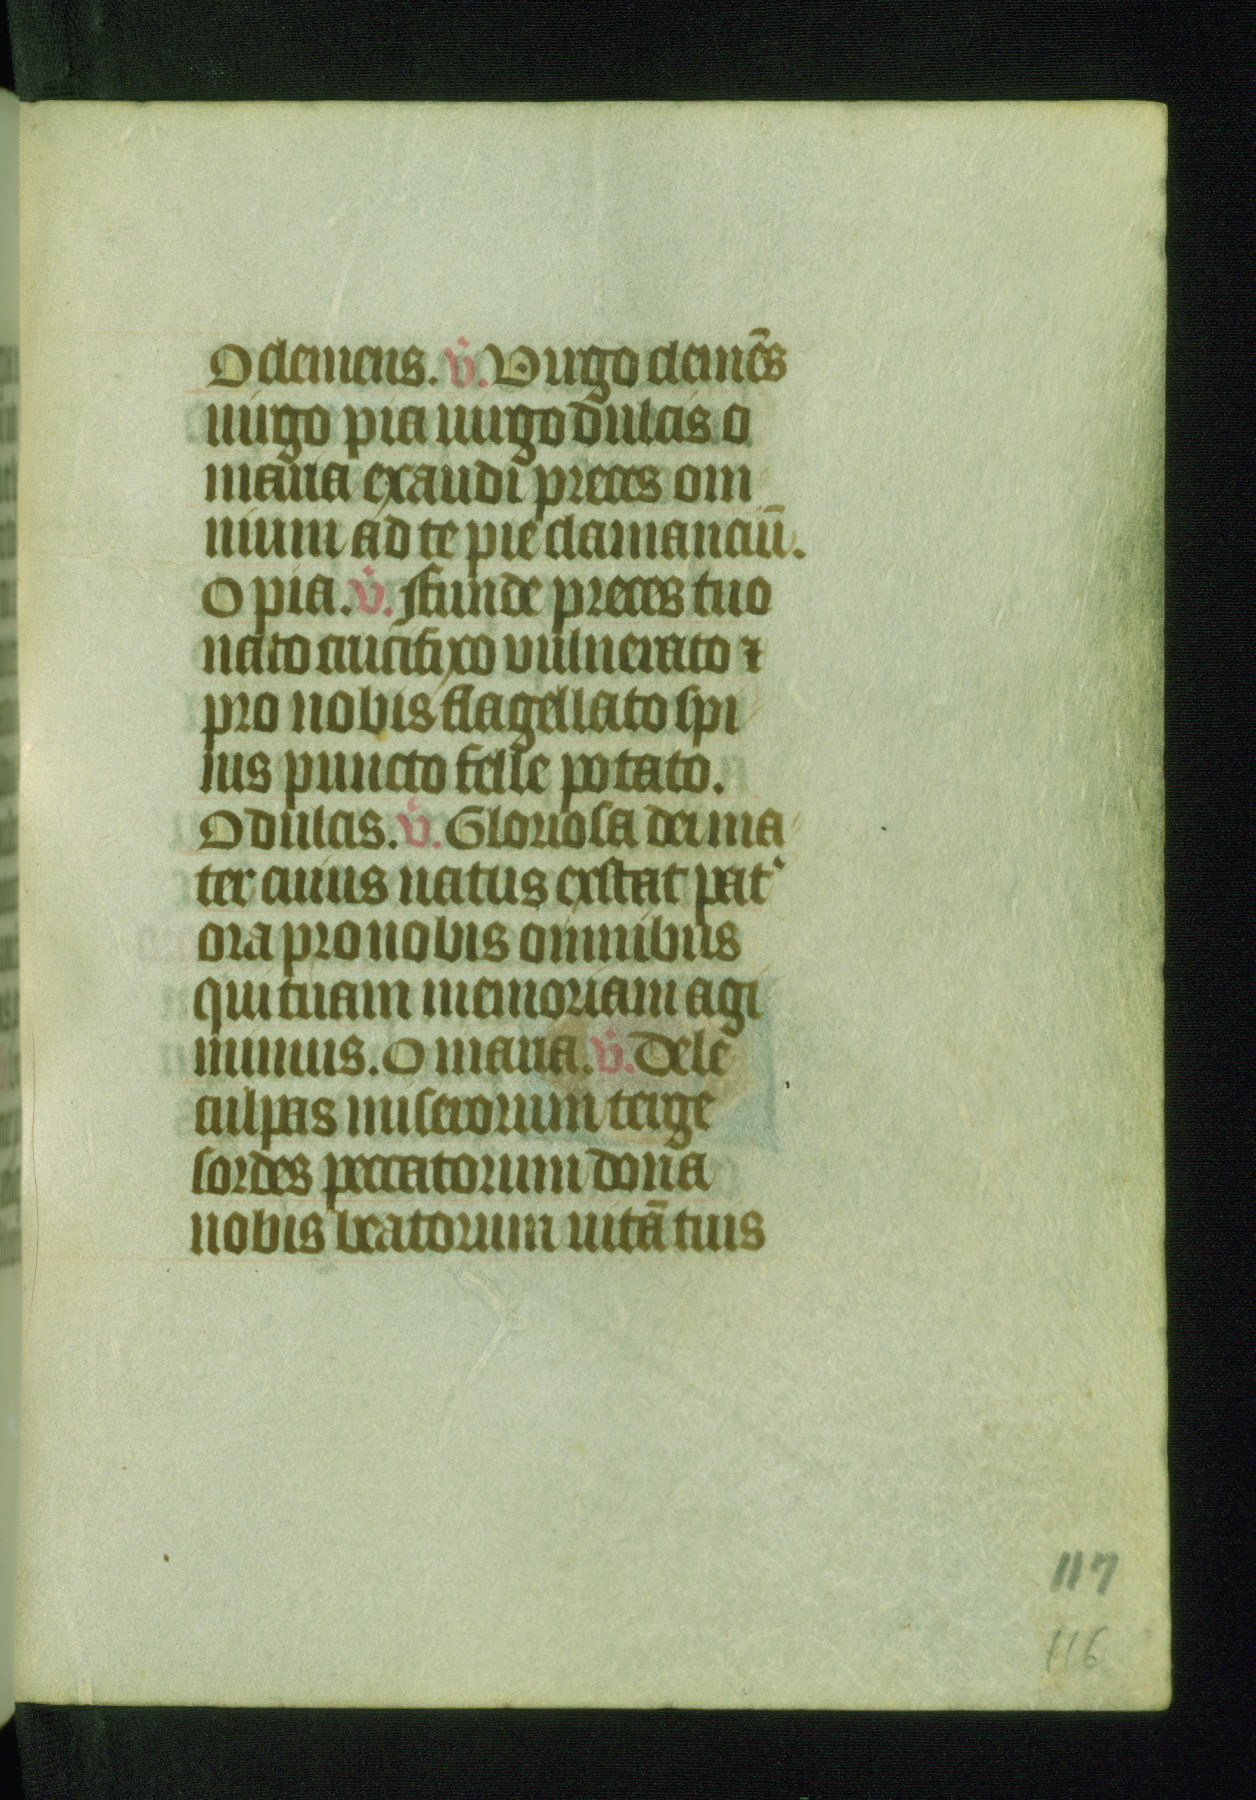 O clemens. v̇. Virgo clemēs
uirgo pia uirgo dulcis o
maria exaudi preces om
nium ad te pie clamanciū.
O pia. v̇. ffunde preces tuo
nato crucifixo vulnerato ⁊
pro nobis flagellato spi
nis puncto felle potato.
O dulcis. v̇. Gloriosa dei ma
ter cuius natus exstat pat᾽
ora pro nobis omnibus
qui tuam memoriam agi
mimus. O maria. v̇. Dele
culpas miserorum terge
sordes peccatorum dona
nobis beatorum uitā tuis
117
116